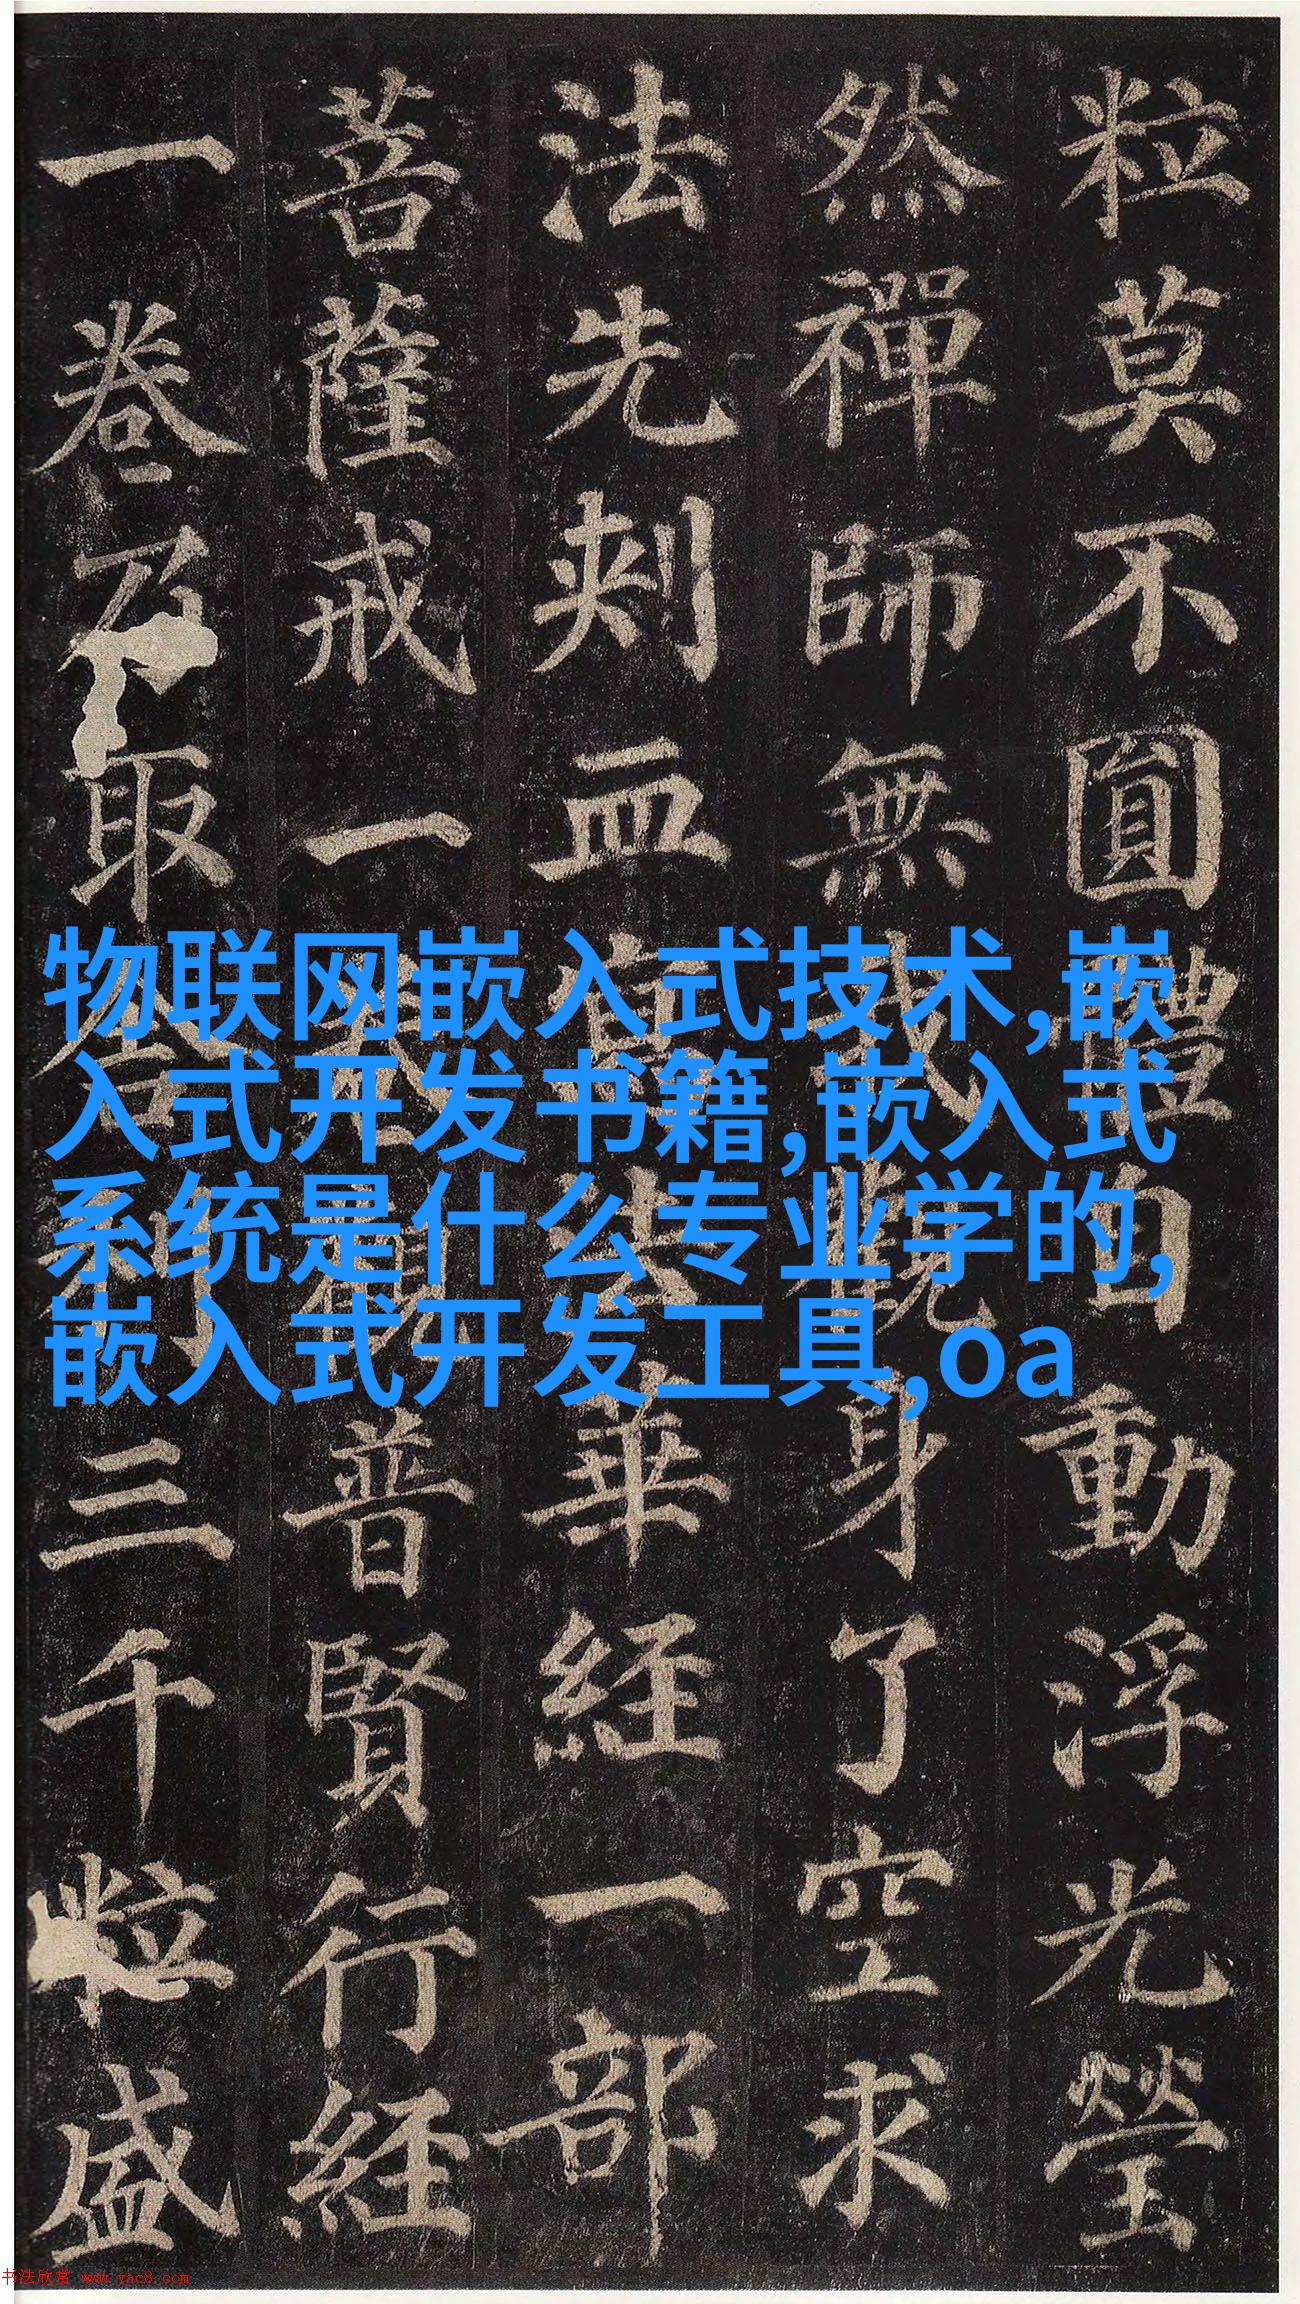 粒莫不圓體自動浮光瑩
然禪師無我觀身了空求
法先刾血寫法華経一部
菩薩戒一卷觀普賢行経
一卷乃取舍利三千粒盛
物联网嵌入式技术,嵌
入式开发书籍,嵌入式
系统是什么专业学的,
嵌入式开发工具,oa
书法欣赏 www.yac8.com